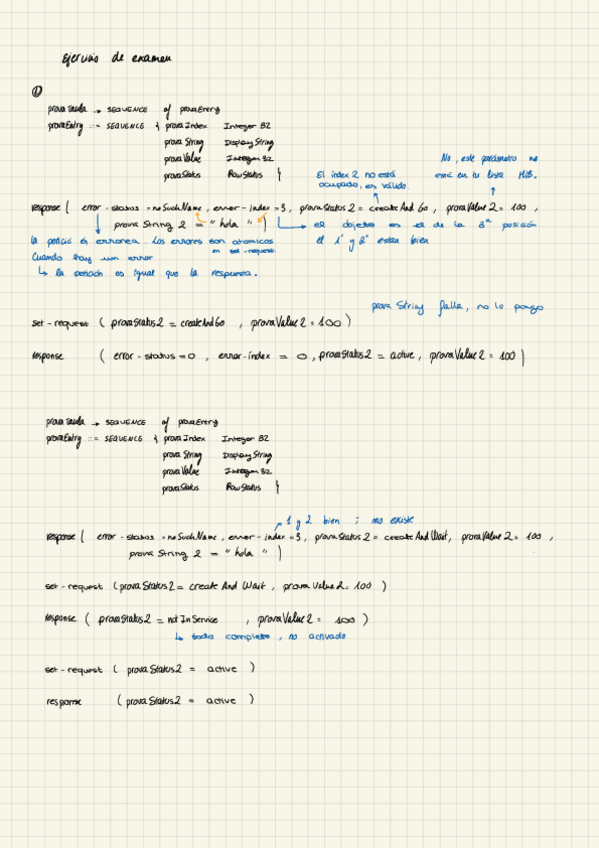 Ejercicio de examen
①
prova Taula → SEQUENCE of provaEntry
provaEntry ::= SEQUENCE { prova Index Integer 32
prova String Display String
prova Value Integer 32
prova Status Row Status }
El index 2 no está ocupado, es válido.
No, este parámetro no está en tu lista MIB.
response ( error - status = noSuchName , error - index = 3, provaStatus 2 = create And Go , prova Value 2 = 100 ,
prova String 2 = "hola" )
el objeto es el de la 3ª posición
la petició es erronea. Los errores son atomicos
en set-request.
el 1º y 2º están bien
Cuando hay un error
↳ la petición es igual que la respuesta.
prova String falla, no lo pongo
set - request ( provaStatus 2 = createAndGo , prova Value 2 = 100 )
response ( error - status = 0 , error - index = 0, provaStatus 2 = active , prova Value 2 = 100 )
prova Taula → SEQUENCE of provaEntry
provaEntry ::= SEQUENCE { prova Index Integer 32
prova String Display String
prova Value Integer 32
prova Status Row Status }
1 y 2 bien ; no existe
response ( error - status = noSuchName , error - index = 3, prova Status 2 = create And Wait, prova Value 2 = 100 ,
prova String 2 = "hola" )
set - request (prova Status 2 = create And Wait , prova Value 2 = 100 )
response ( prova Status 2 = not In Service , prova Value 2 = 100 )
↳ todo completo , no activado
set - request ( prova Status 2 = active )
response ( prova Status 2 = active )